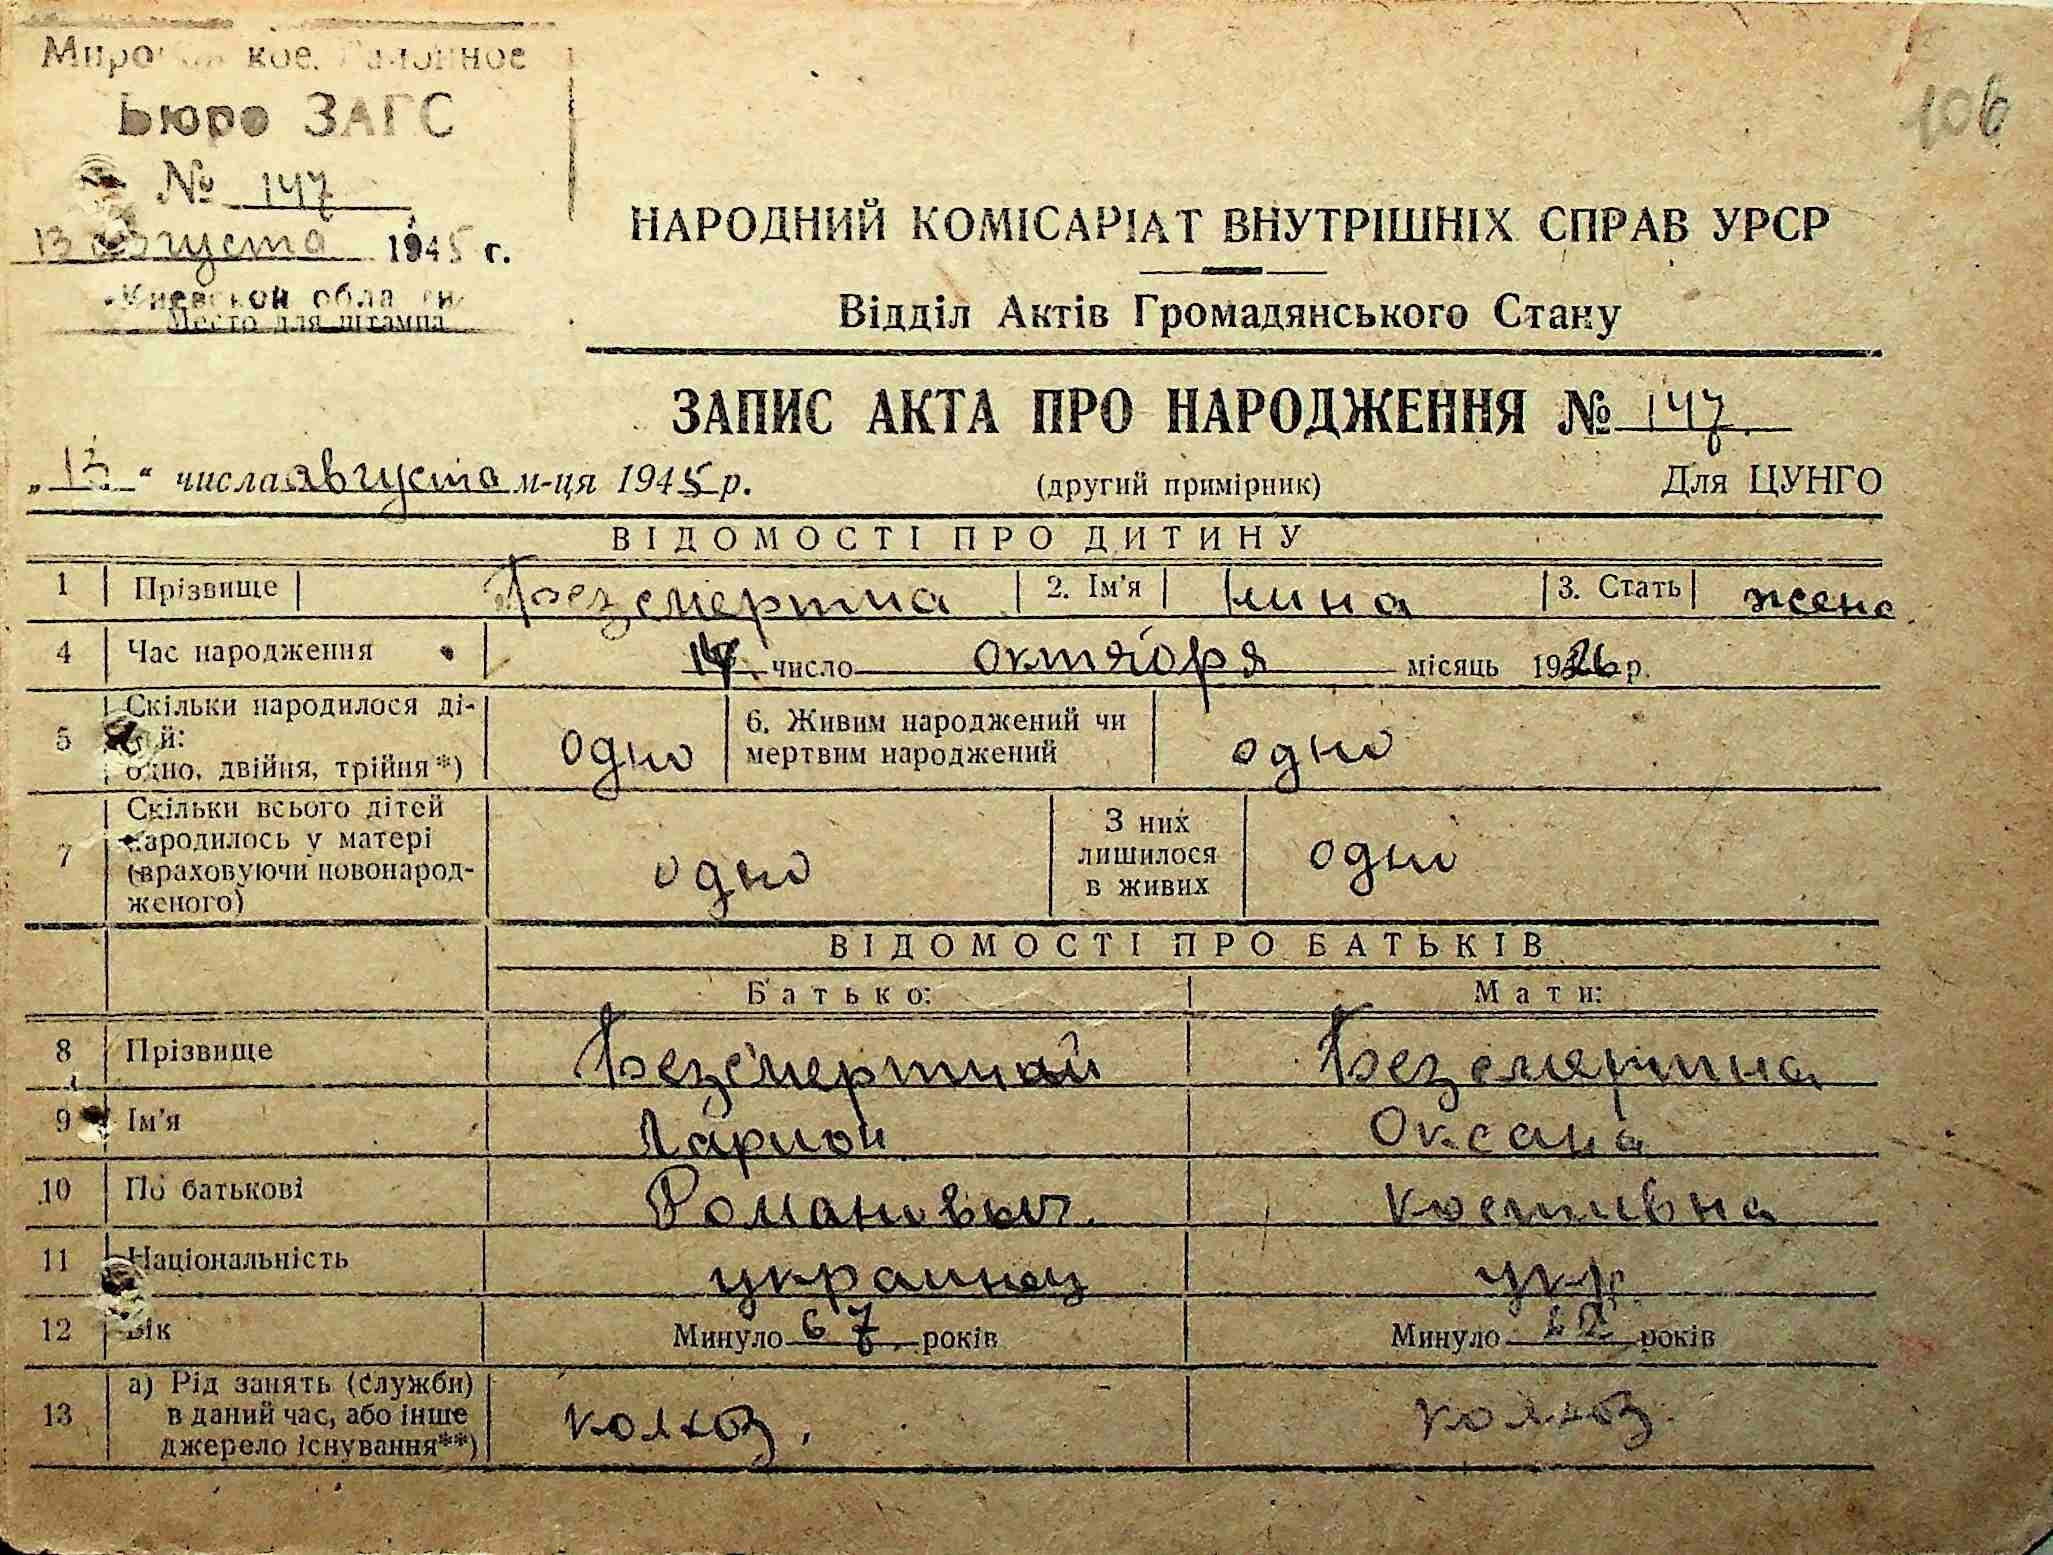 кое
Бюро ЗАГС
106
№ 147
13 августа 1945 г.
НАРОДНИЙ КОМІСАРІАТ ВНУТРІШНІХ СПРАВ УРСР
Киевской
Место для штампа
Відділ Актів Громадянського Стану
ЗАПИС АКТА ПРО НАРОДЖЕННЯ № 147
„13“ числа августа м-ця 1945 р. (другий примірник) Для ЦУНГО
ВІДОМОСТІ ПРО ДИТИНУ
1 Прізвище Безсмертна 2. Ім'я Нина 3. Стать жено
4 Час народження число октября місяць 1926 р.
5 Скільки народилося ді-
й:
одно, двійня, трійня*) одно 6. Живим народжений чи
мертвим народжений одно
7 Скільки всього дітей
народилось у матері
(враховуючи новонарод-
женого) одно З них
лишилося
в живих одно
ВІДОМОСТІ ПРО БАТЬКІВ
Батько: Мати:
8 Прізвище Безсмертний Безсмертна
9 Ім'я Ларион Оксана
10 По батькові Романович. Костивна
11 Національність украинец укр.
12 Вік Минуло 67 років Минуло років
13 а) Рід занять (служби)
в даний час, або інше
джерело існування**) колхоз. колхоз.